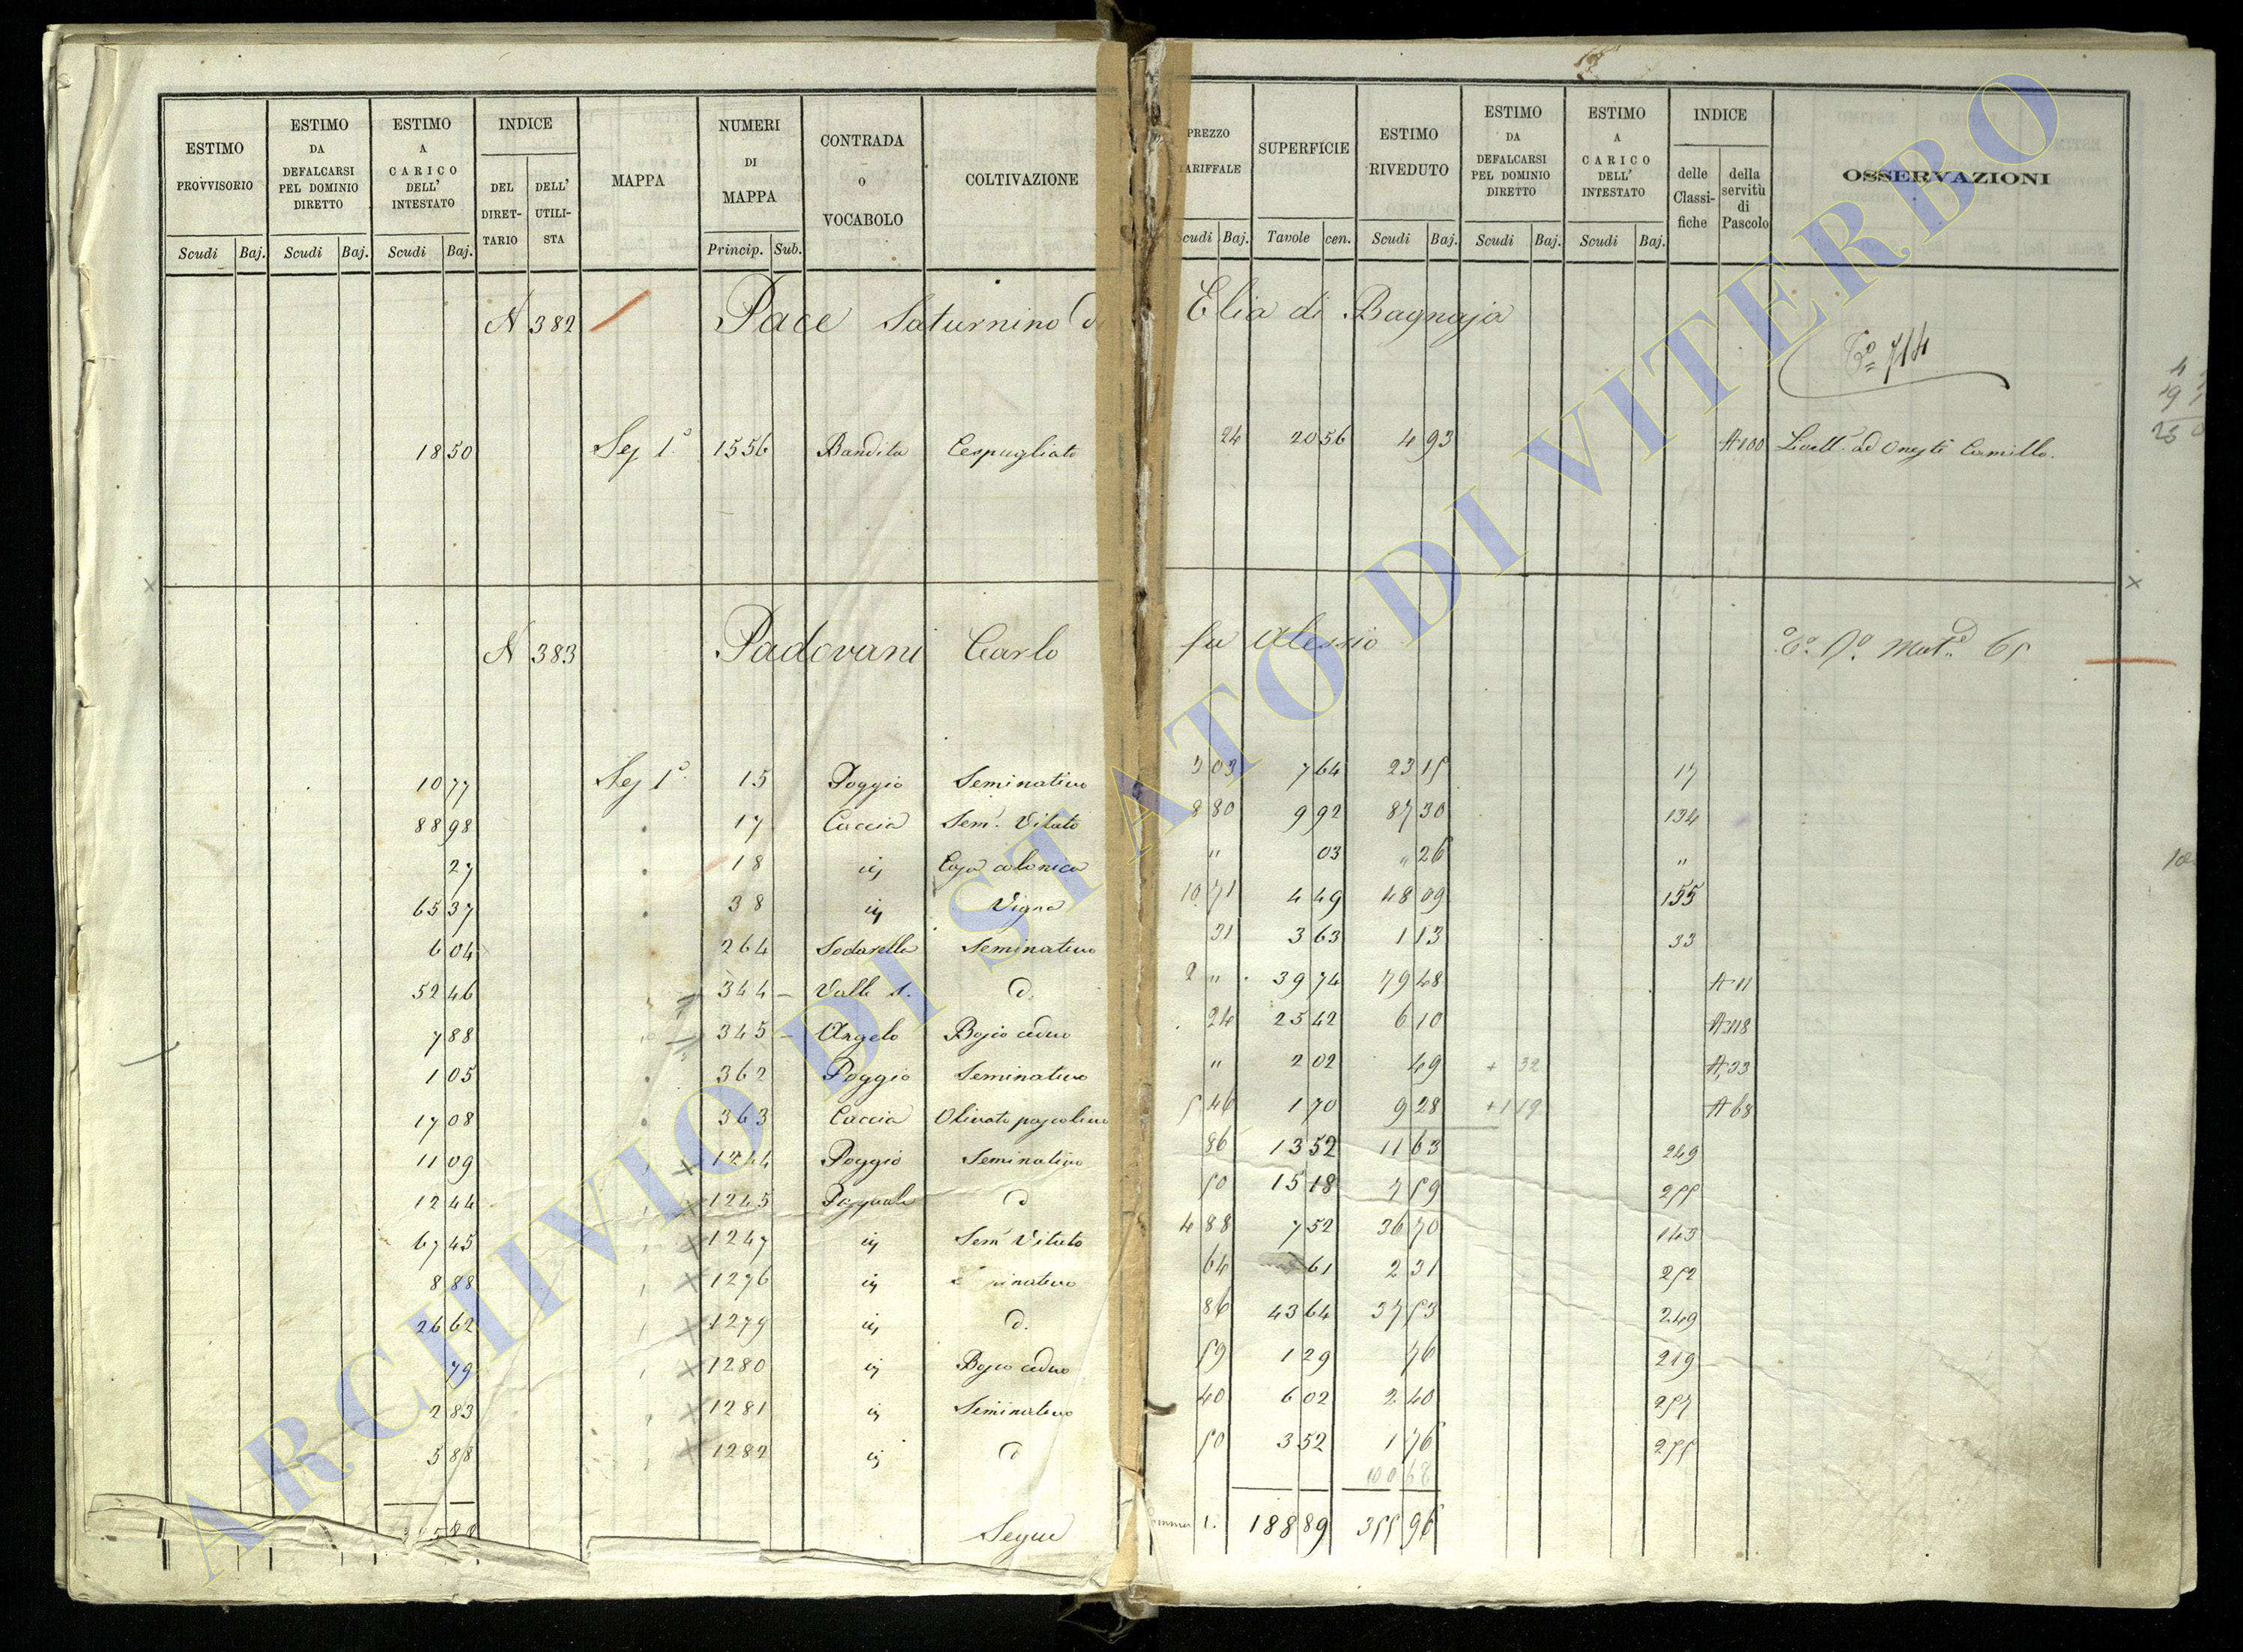 ESTIMO PROVVISORIO Scudi Baj.
ESTIMO DA DEFALCARSI PEL DOMINIO DIRETTO Scudi Baj.
ESTIMO A CARICO DELL' INTESTATO Scudi Baj.
INDICE DEL DIRETTARIO DELL' UTILISTA
MAPPA
NUMERI DI MAPPA Princip. Sub.
CONTRADA o VOCABOLO
COLTIVAZIONE
PREZZO TARIFFALE Scudi Baj.
SUPERFICIE Tavole cen.
ESTIMO RIVEDUTO Scudi Baj.
ESTIMO DA DEFALCARSI PEL DOMINIO DIRETTO Scudi Baj.
ESTIMO A CARICO DELL' INTESTATO Scudi Baj.
INDICE delle Classifiche della servitù di Pascolo
OSSERVAZIONI
N 382 Pace Saturnino di Elia di Bagnaja
714
18 50 Sez 1ª 1556 Bandita Cespugliato 24 20 56 4 93 A 100 Livell. ad Onesti Camillo.
N 383 Padovani Carlo fu Alessio
10 77 Sez 1ª 15 Poggio Seminativo 3 03 7 64 23 15 17
88 98 17 Caccia Sem. Vitato 8 80 9 92 87 30 134
27 18 id Casa colonica " 03 " 26 "
65 37 38 id Vigna 10 71 4 49 48 09 155
6 04 264 Sodarella Seminativo 31 3 63 1 13 33
52 46 344 Valle S. d. 2 " 39 74 79 48 A 11
7 88 345 Angelo Bosco ceduo 24 25 42 6 10 A 118
1 05 362 Poggio Seminativo " 2 02 49 + 32 A 33
17 08 363 Caccia Olivato pascolivo 5 46 1 70 9 28 + 1 19 A 68
11 09 1244 Poggio Seminativo 86 13 52 11 63 249
12 44 1245 Pasquale d 50 15 18 7 59 255
67 45 1247 id Sem Vitato 4 88 7 52 36 70 143
8 88 1276 id Seminativo 64 3 61 2 31 252
26 62 1279 id d. 86 43 64 37 53 249
79 1280 id Bosco ceduo 59 1 29 76 219
2 83 1281 id Seminativo 40 6 02 2 40 257
5 88 1282 id d 50 3 52 1 76 255
100 68
Segue Somma 1. 188 89 355 96
ARCHIVIO DI STATO DI VITERBO